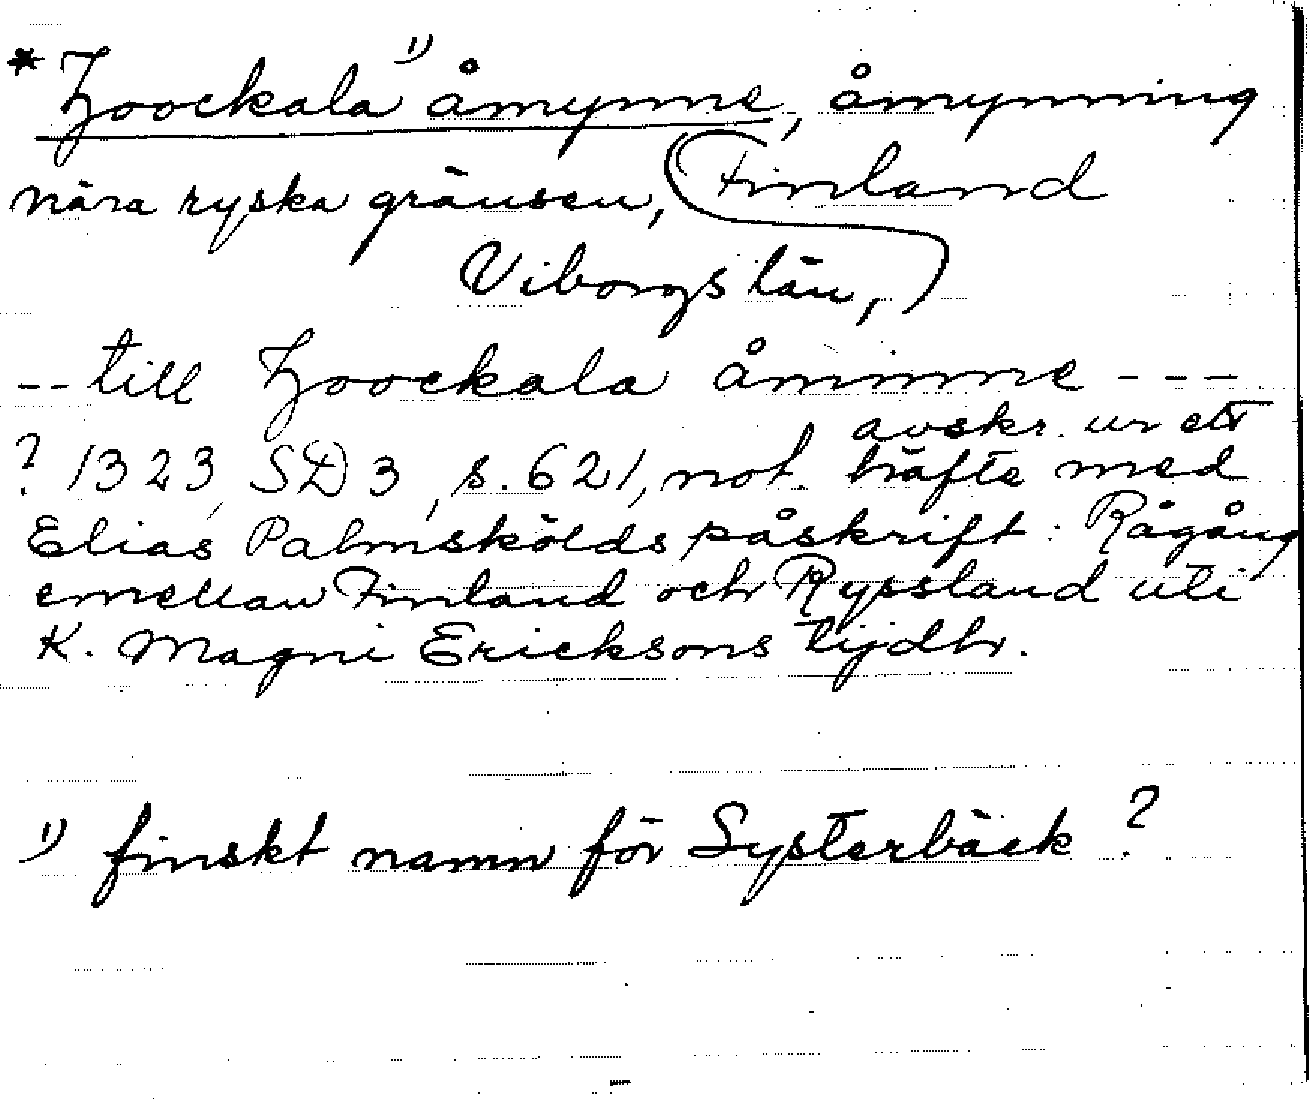 * Zoockala 1) åmynne, åmynning
nära ryska gränsen, Finland
Viborgs län,
-- till Zoockala åminne ---
avskr. ur ett
? 1323, SD 3, s. 621, not. häfte med
Elias Palmskölds påskrift: Rågång
emellan Finland och Ryssland uti
K. Magni Ericksons tijdhr.
1) finskt namn för Systerbäck ?